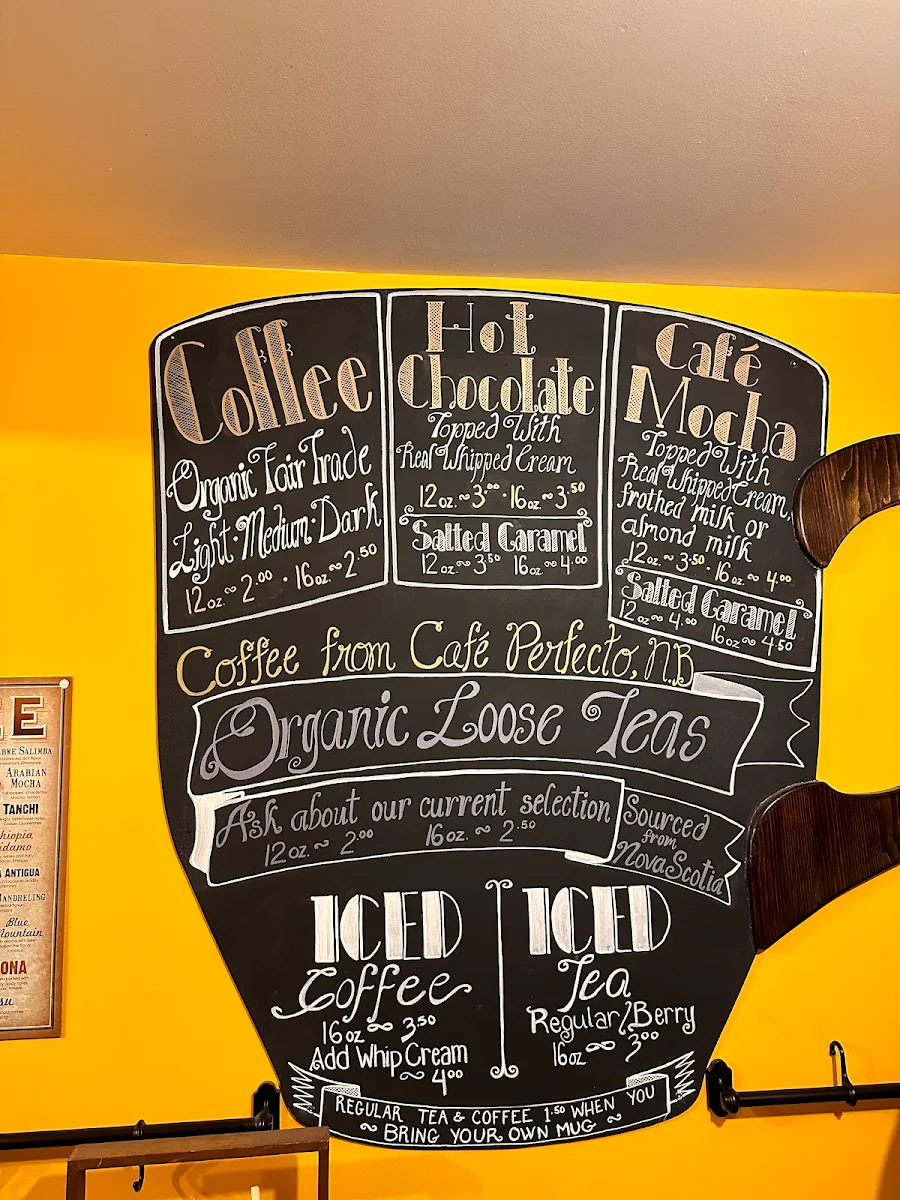 Coffee
Organic Fair Trade
Light · Medium · Dark
12 oz. ~ 2.00 · 16 oz. ~ 2.50
Hot
Chocolate
Topped With
Real Whipped Cream
12 oz. ~ 3.00 · 16 oz. ~ 3.50
Salted Caramel
12 oz. ~ 3.50 16 oz ~ 4.00
Café
Mocha
Topped With
Real Whipped Cream,
frothed milk or
almond milk
12 oz. ~ 3.50 · 16 oz. ~ 4.00
Salted Caramel
12 oz ~ 4.00 16 oz ~ 4.50
Coffee from Café Perfecto, N.B
Organic Loose Teas
Ask about our current selection
12 oz. ~ 2.00 16 oz. ~ 2.50
Sourced
from
Nova Scotia
ICED
Coffee
16 oz ~ 3.50
Add Whip Cream
~ 4.00
ICED
Tea
Regular/Berry
16 oz ~ 3.00
REGULAR TEA & COFFEE 1.50 WHEN YOU
~ BRING YOUR OWN MUG ~
E
SALIMBA
ARABIAN
MOCHA
TANCHI
ANTIGUA
MANDHELING
Blue
Mountain
ONA